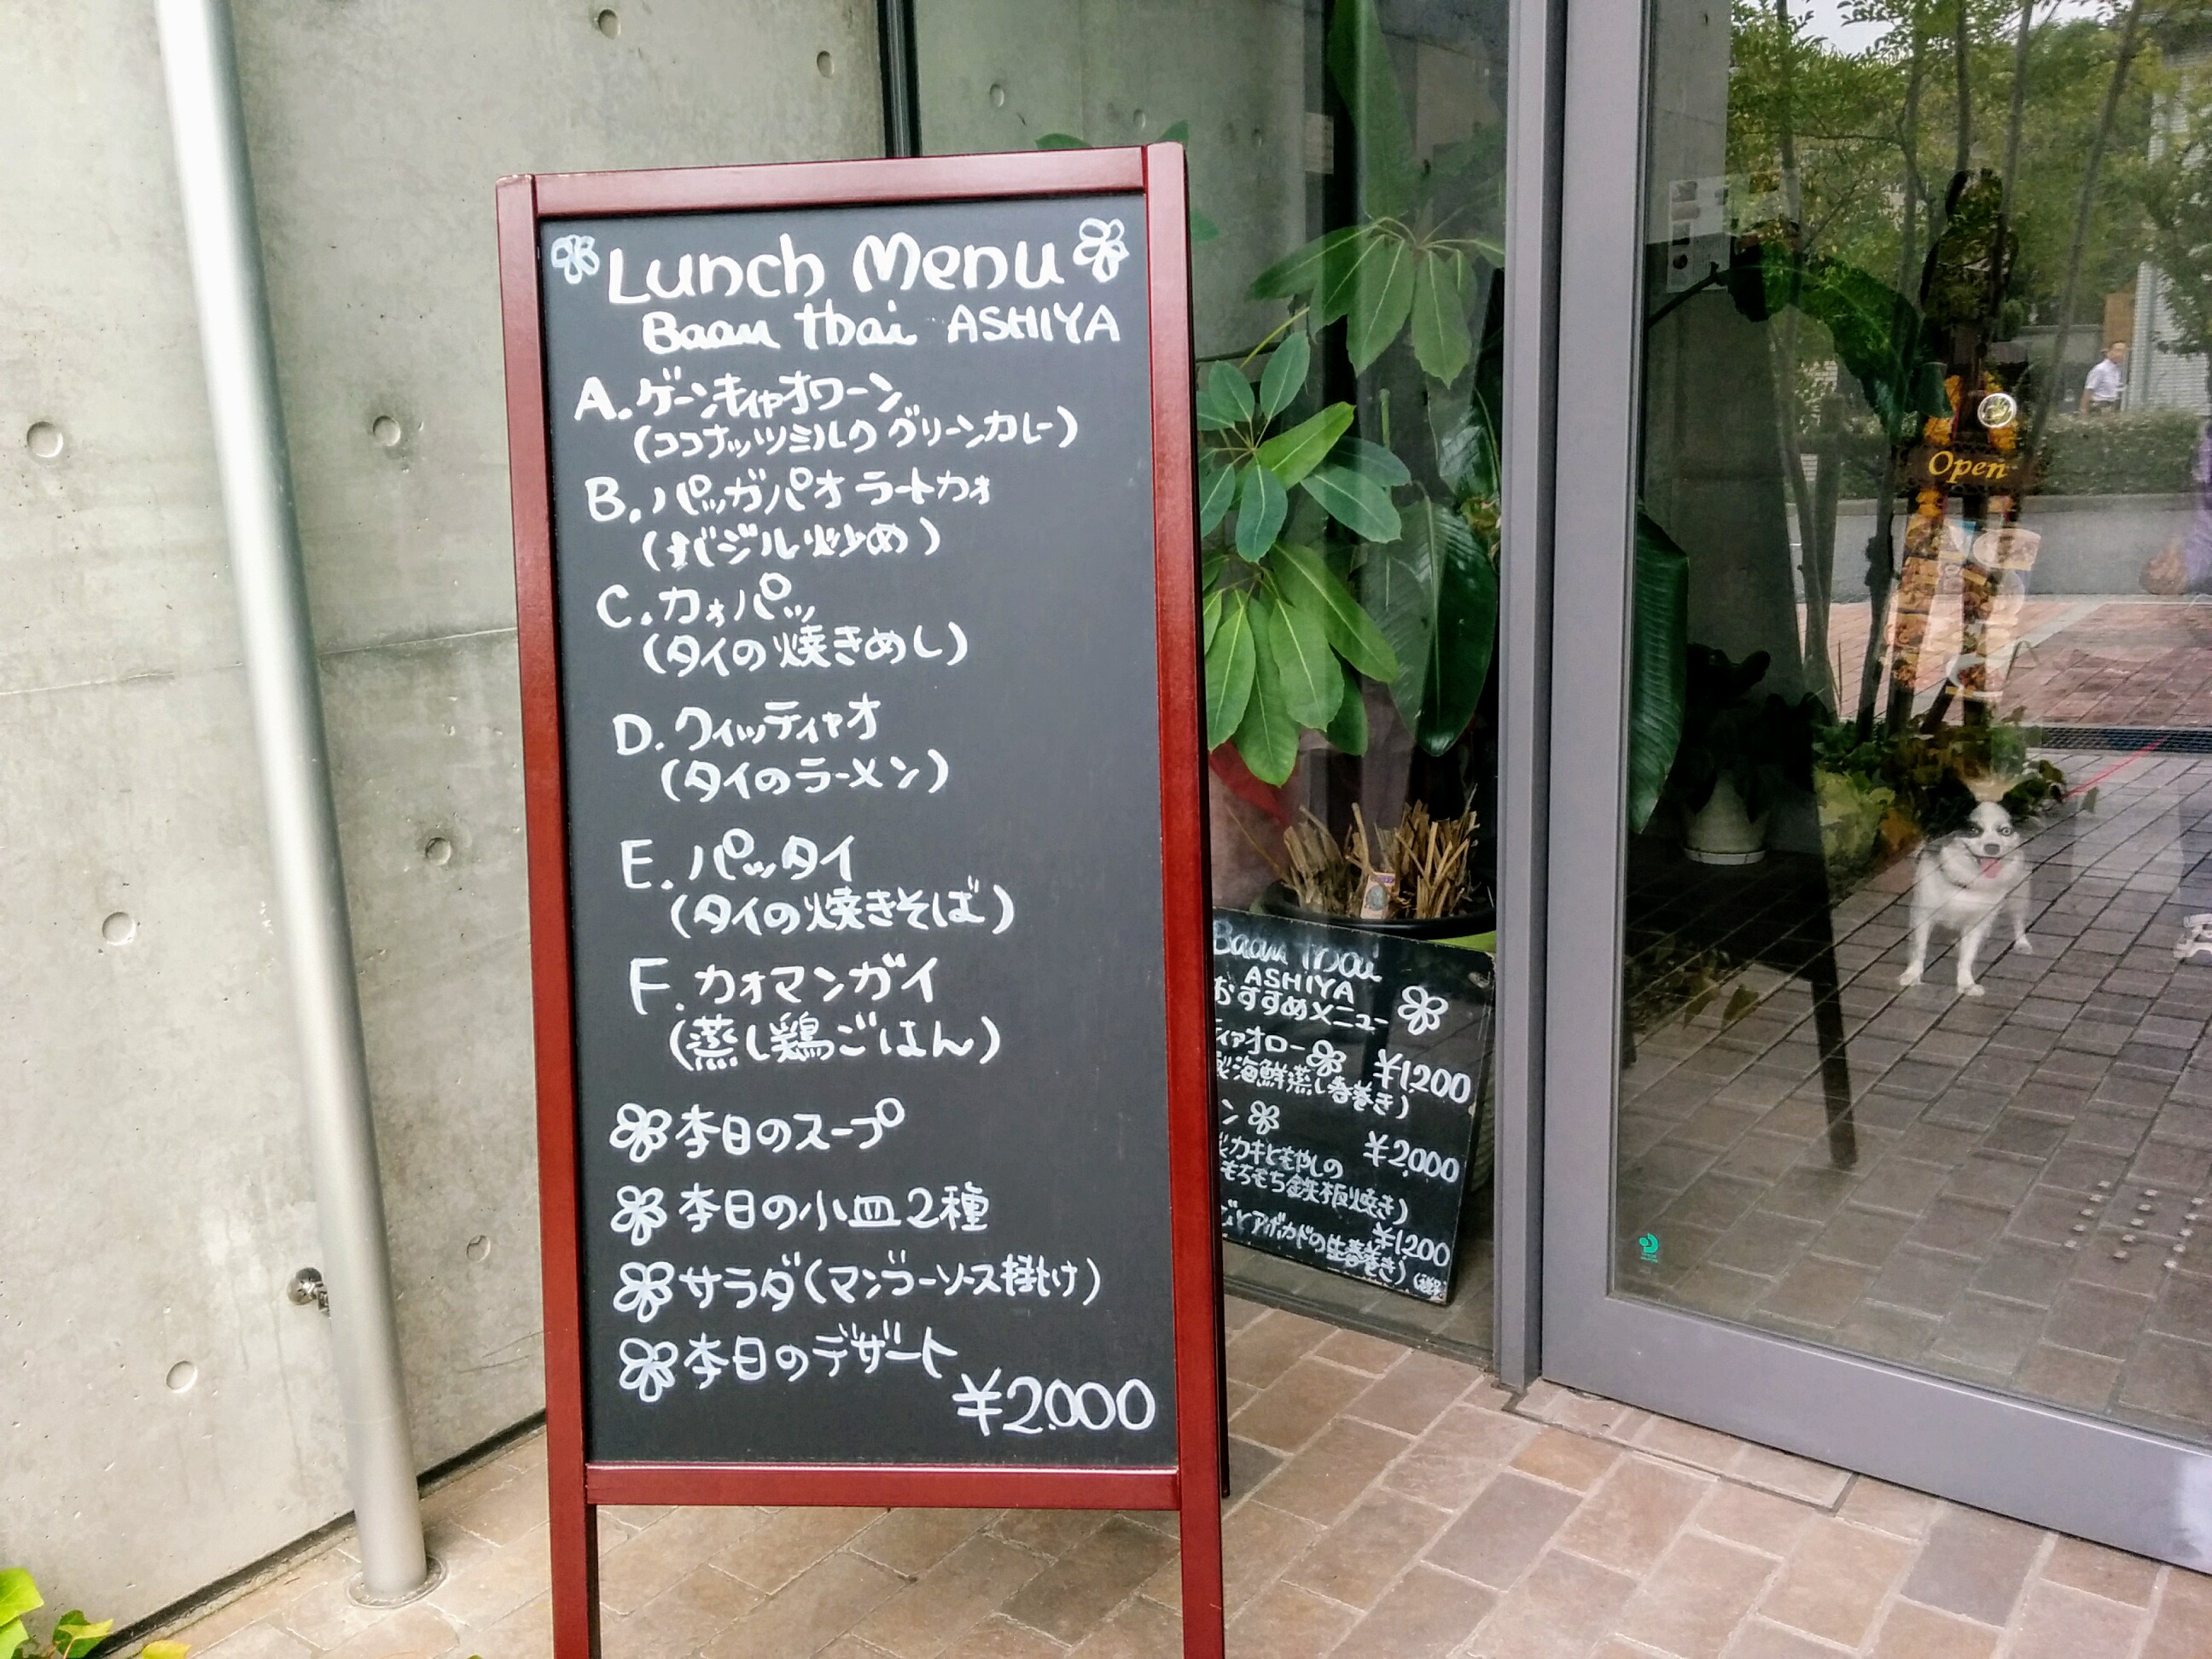 Lunch Menu
Baan thai ASHIYA
A.ゲーンキィャオワーン
(ココナッツミルクグリーンカレー)
B.パッガパオラートカォ
(バジル炒め)
C.カォパッ
(タイの焼きめし)
D.クィッティャオ
(タイのラーメン)
E.パッタイ
(タイの焼きそば)
F.カオマンガイ
(蒸し鶏ごはん)
本日のスープ
本日の小皿2種
サラダ(マンゴーソース掛け)
本日のデザート
¥2.000
Baan thai
ASHIYA
おすすめメニュー
ティャオロー
¥1.200
海鮮蒸し春巻き)
ン
¥2.000
カキともやしの
もちもち鉄板焼き)
とアボカドの生春巻き)
¥1.200
Open